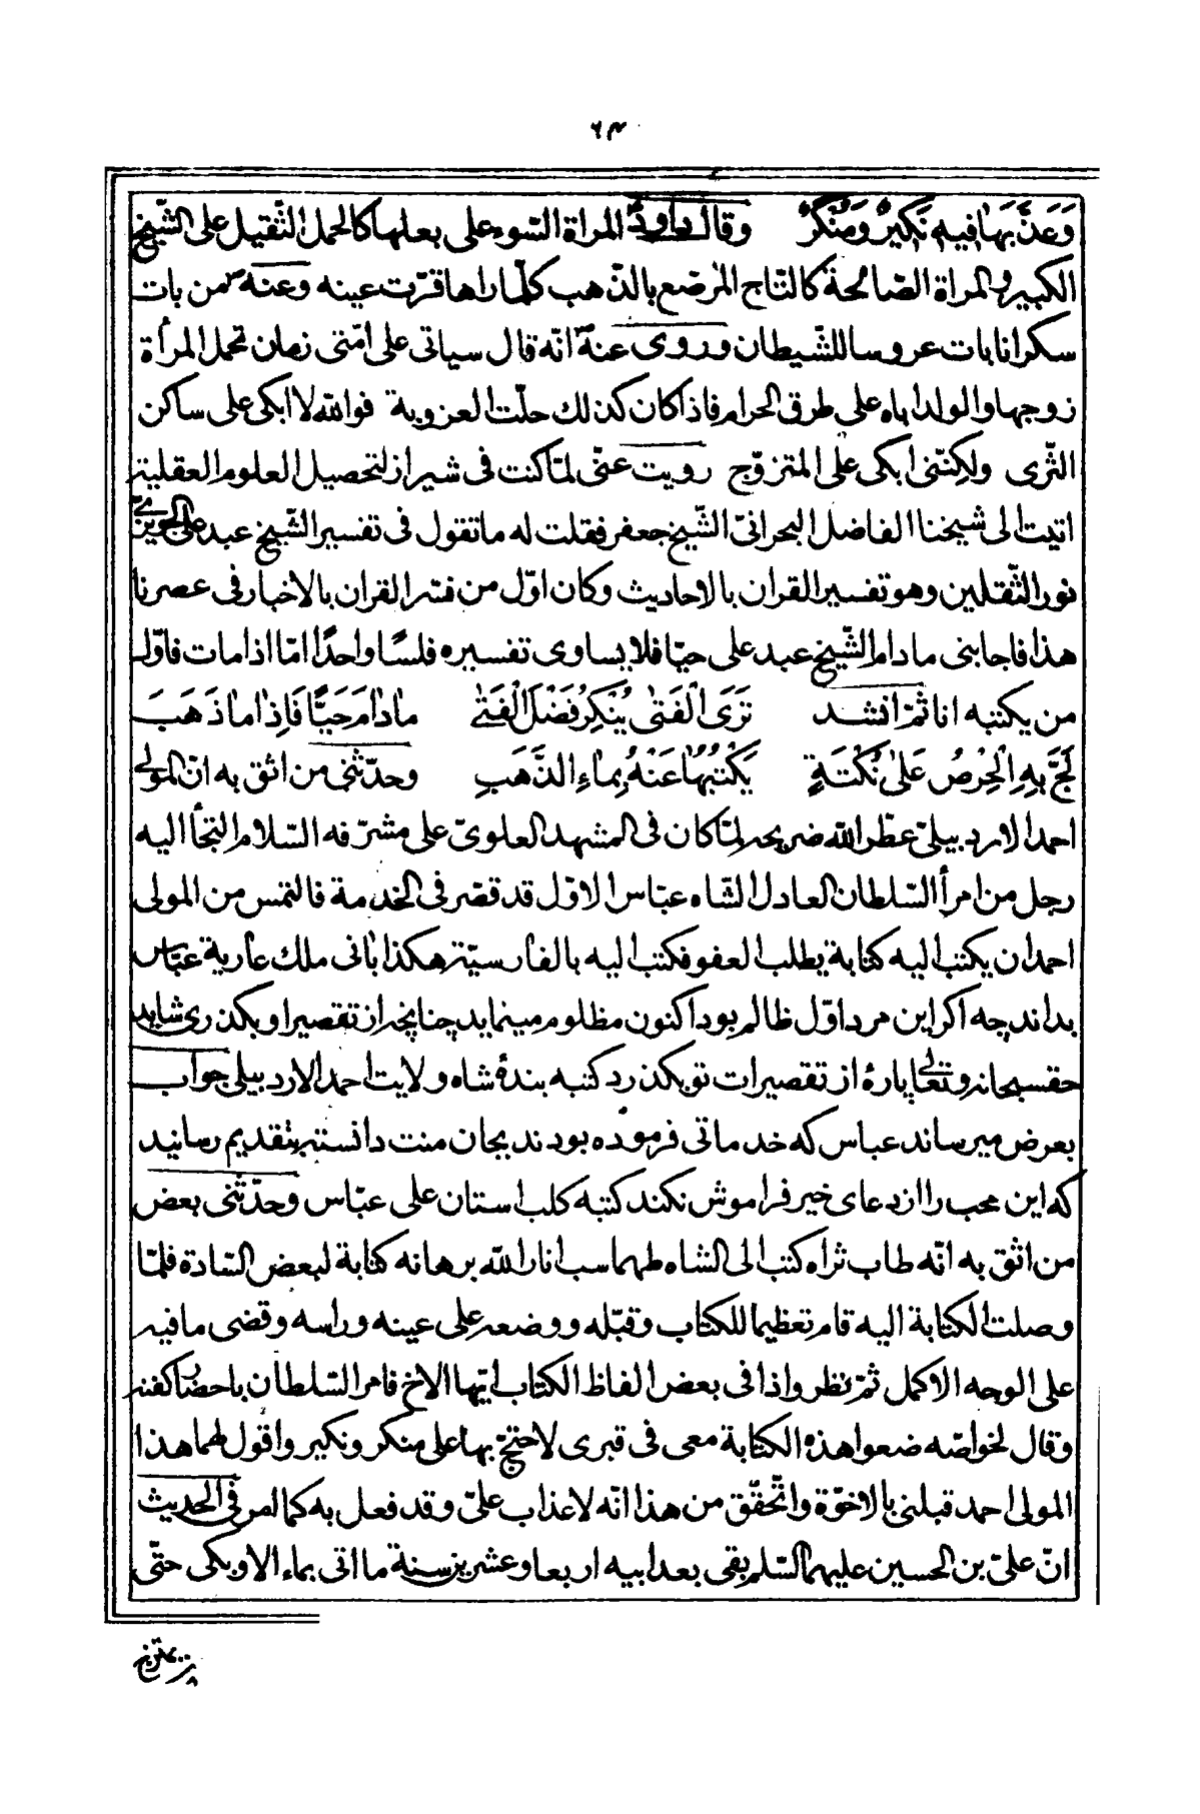 ٦٣
وَعَذَّبَهَا فيهِ نَكِيرٌ وَمُنْكَرٌ وقال داود المراة السّوء على بعلها كالحمل الثّقيل على الشّيخ
الكبير والمراة الصّالحة كالتّاج المرضع بالذّهب كلّما راها قرّت عينه وعنه ص من بات
سكرانا بات عروسا للشّيطان وروى عنه ص انّه قال سياتى على امّتى زمان تحمل المرأة
زوجها والولد اباه على طرق الحرام فاذا كان كذلك حلّت العزوبة فوالله لا ابكى على ساكن
الثّرى ولكِنّنى ابكى على المتزوّج رويت عنّى لمّا كنت فى شيراز لتحصيل العلوم العقلية
اتيت الى شيخنا الفاضل البحرانىّ الشّيخ جعفر فقلت له ما تقول فى تفسير الشّيخ عبد على الحويزى
نور الثّقلين وهو تفسير القران بالاحاديث وكان اوّل من فسّر القران بالاخبار فى عصرنا
هذا فاجابنى ما دام الشّيخ عبد على حيّا فلا يساوى تفسيره فلسًا واحدًا امّا اذا مات فاوّل
من يكتبه انا ثمّ انشد تَرَى الْفَتىٰ يُنْكِرُ فَضْلَ الْفَتىٰ مادٰامَ حَيًّا فَاِذٰا مٰا ذَهَبَ
لَجَّ بِهِ الْحِرْصُ عَلىٰ نُكْتَةٍ يَكْتُبُهٰا عَنْهُ بِمٰاءِ الذَّهَبِ وحدّثنى من اثق به انّ المولى
احمد الاردبيلىّ عطّر الله ضريحه لمّا كان فى المشهد العلوىّ على مشرّفه السّلام التجأ اليه
رجل من امرأ السّلطان العادل الشّاه عبّاس الاوّل قد قصّر فى الخدمة فالتمس من المولى
احمد ان يكتب اليه كتابة يطلب العفو فكتب اليه بالفارسيّة هكذا بانى ملك عارية عبّاس
بداند چه اكر اين مرد اوّل ظالم بود اكنون مظلوم مينمايد چنانچه از تقصير او بكذرى شايد
حقسبحانه وتعالى پارهٔ از تقصيرات تو بكذرد كتبه بندهٔ شاه ولايت احمد الاردبيلى جواب
بعرض ميرساند عباس كه خدماتى فرموده بودند بجان منت دانسته بتقديم رسانيد
كه اين محب را از دعاى خير فراموش نكند كتبه كلب استان على عبّاس وحدّثنى بعض
من اثق به انّه طاب ثراه كتب الى الشاه طهماسب انار الله برهانه كتابة لبعض السّادة فلمّا
وصلت الكتابة اليه قام تعظيما للكتاب وقبّله ووضعه على عينه وراسه وقضى ما فيه
على الوجه الاكمل ثمّ نظر واذا فى بعض الفاظ الكتاب ايّها الاخ فامر السّلطان باحضار كفنه
وقال لخواصّه ضعوا هذه الكتابة معى فى قبرى لاحتجّ بها على منكر ونكير واقول لهما هذا
المولى احمد قبلنى بالاخوّة واتّحقّق من هذا انّه لا عذاب علىّ وقد فعل به كما امر فى الحديث
انّ علىّ بن الحسين عليهما السّلم بقى بعد ابيه اربعا وعشرين سنة ما اتى بماء الا وبكى حتّى